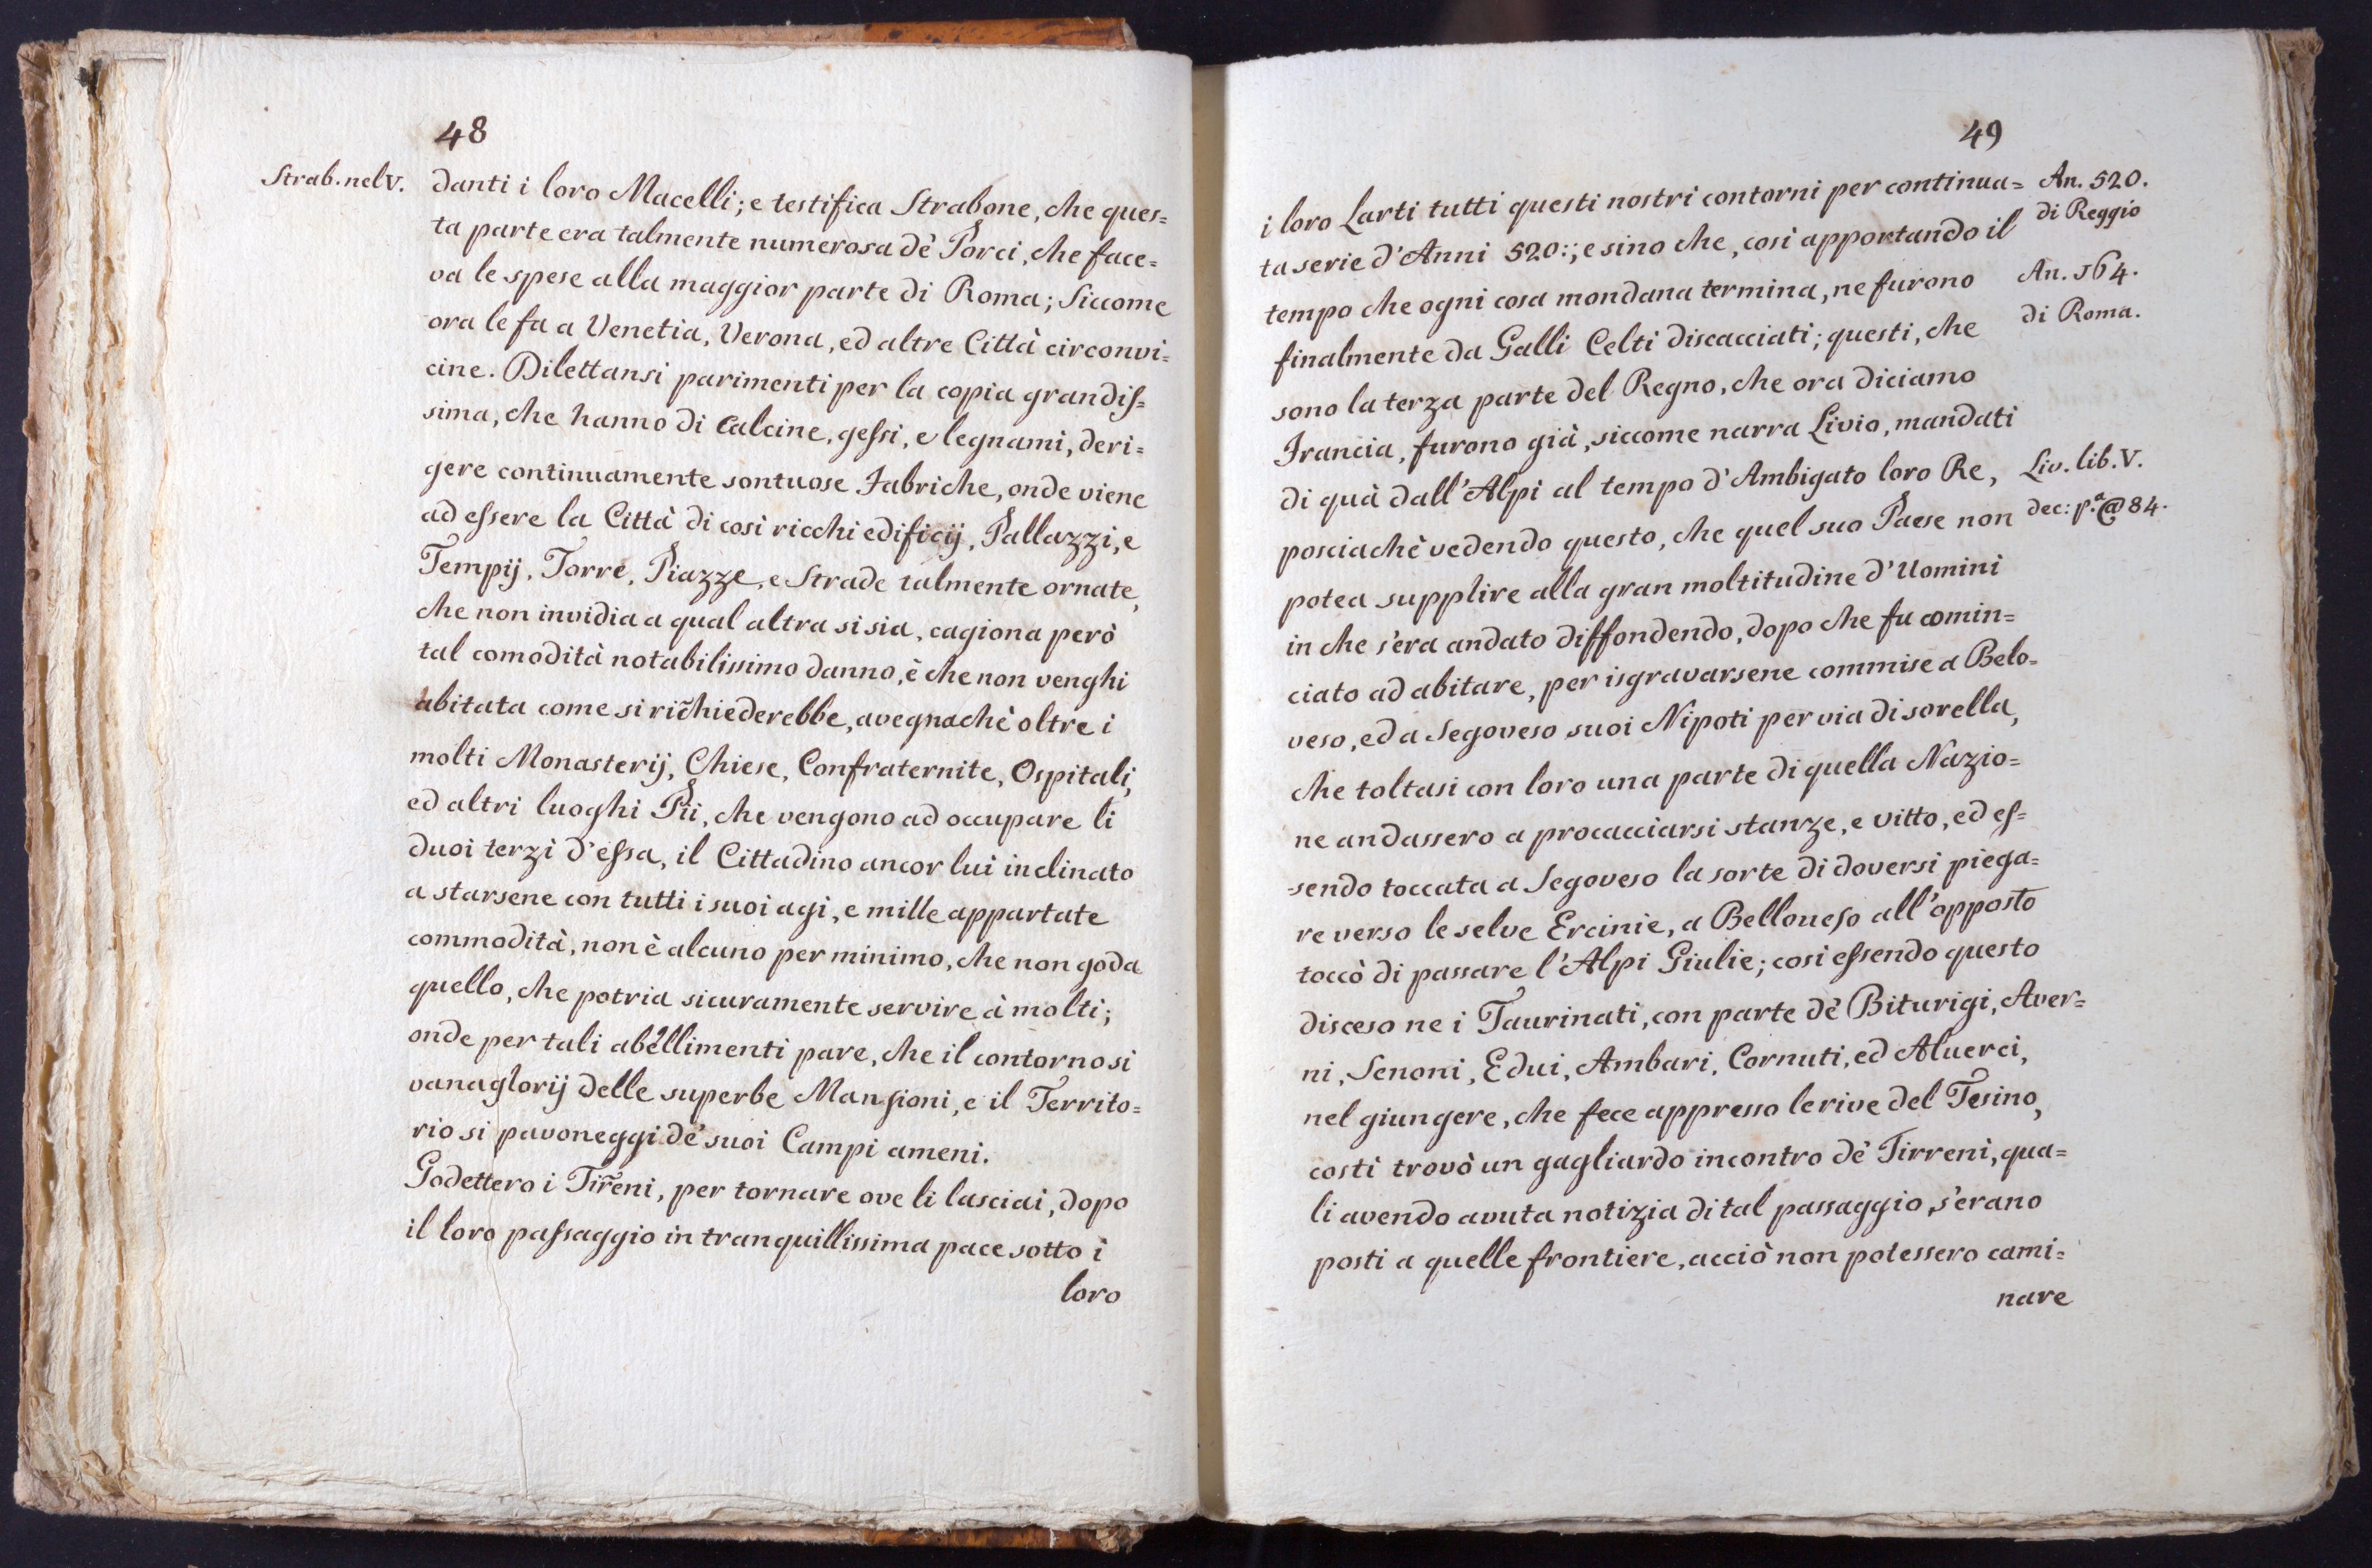 48
Strab. nel V.
danti i loro Macelli; e testifica Strabone, che ques=
ta parte era talmente numerosa dè Porci, che face=
va le spese alla maggior parte di Roma; Siccome
ora le fa a Venetia, Verona, ed altre Città circonvi=
cine. Dilettansi parimenti per la copia grandis=
sima, che hanno di Calcine, gessi, e legnami, deri=
gere continuamente sontuose Fabriche, onde viene
ad essere la Città di così ricchi edificij, Pallazzi, e
Tempij, Torre, Piazze, e Strade talmente ornate,
che non invidia a qual altra si sia, cagiona però
tal comodità notabilissimo danno, è che non venghi
abitata come si richiederebbe, avegnachè oltre i
molti Monasterij, Chiese, Confraternite, Ospitali,
ed altri luoghi Pii, che vengono ad occupare li
duoi terzi d'essa, il Cittadino ancor lui inclinato
a starsene con tutti i suoi agi, e mille appartate
commodità, non è alcuno per minimo, che non goda
quello, che potria sicuramente servire à molti;
onde per tali abellimenti pare, che il contorno si
vanaglorij delle superbe Mansioni, e il Territo=
rio si pavoneggi dè suoi Campi ameni.
Godettero i Tirreni, per tornare ove li lasciai, dopo
il loro passaggio in tranquillissima pace sotto i
loro
49
i loro Larti tutti questi nostri contorni per continua=
ta serie d'Anni 520:; e sino che, così apportando il
tempo che ogni cosa mondana termina, ne furono
finalmente da Galli Celti discacciati; questi, che
sono la terza parte del Regno, che ora diciamo
Francia, furono già, siccome narra Livio, mandati
di quà dall'Alpi al tempo d'Ambigato loro Re,
posciachè vedendo questo, che quel suo Paese non
potea supplire alla gran moltitudine d'Uomini
in che s'era andato diffondendo, dopo che fu comin=
ciato ad abitare, per isgravarsene commise a Belo=
veso, ed a Segoveso suoi Nipoti per via di sorella,
che toltasi con loro una parte di quella Nazio=
ne andassero a procacciarsi stanze, e vitto, ed es=
sendo toccata a Segoveso la sorte di doversi piega=
re verso le selve Ercinie, a Belloueso all'opposto
toccò di passare l'Alpi Giulie; così essendo questo
disceso ne i Taurinati, con parte dè Biturigi, Aver=
ni, Senoni, Edui, Ambari, Cornuti, ed Aluerci,
nel giungere, che fece appresso le rive del Tesino,
costì trovò un gagliardo incontro dè Tirreni, qua=
li avendo avuta notizia di tal passaggio, s'erano
posti a quelle frontiere, acciò non potessero cami=
nare
An. 520.
di Reggio
An. 564.
di Roma.
Liv. lib. V.
dec: p.ª @ 84.